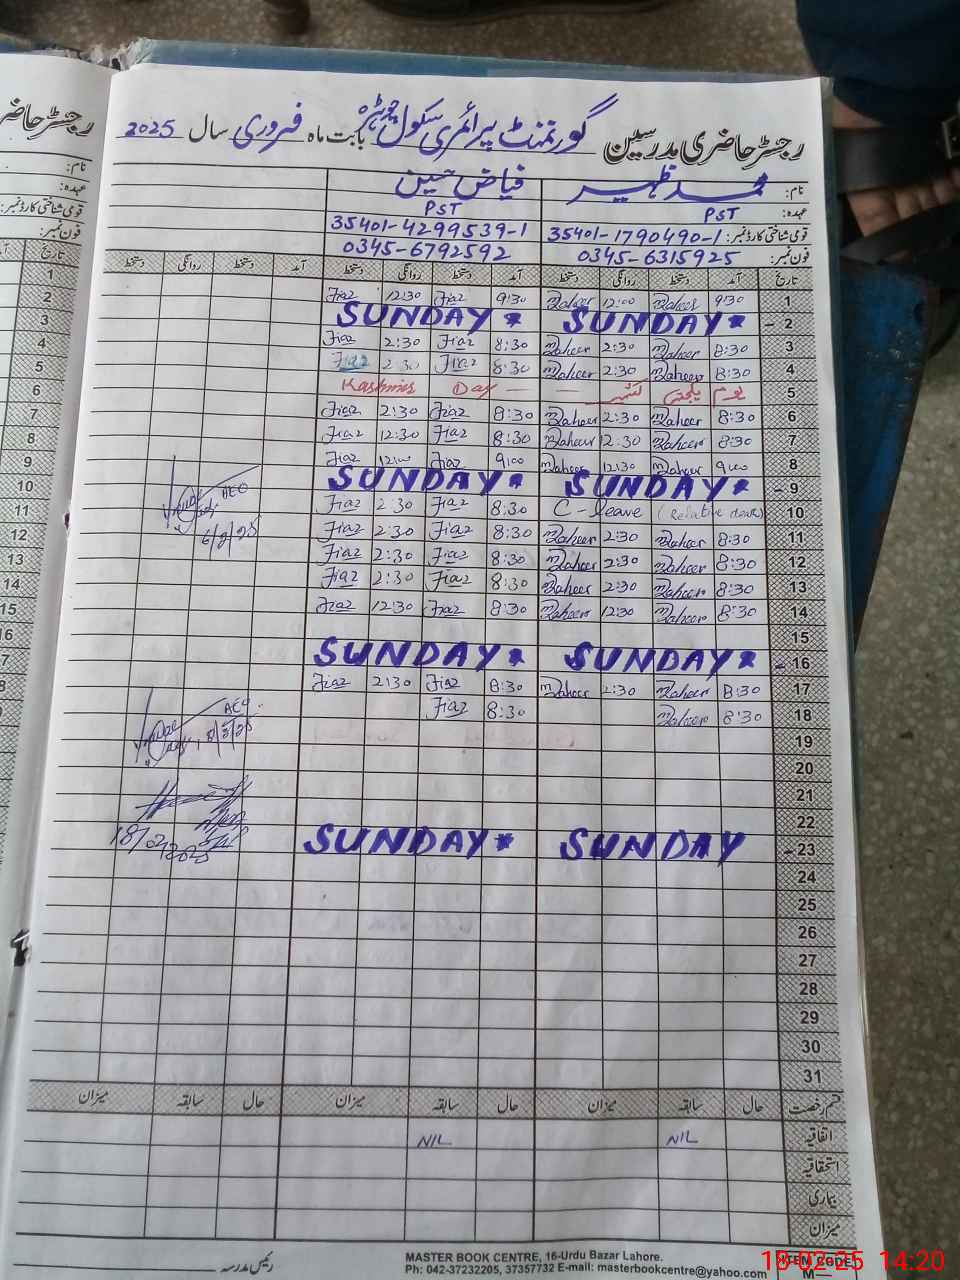 رجسٹر حاضری مدرسین گورنمنٹ پرائمری سکول بابت ماہ فروری سال 2025
نام: محمد ظہیر فیاض حسین
عہدہ: PST PST
قومی شناختی کارڈ نمبر: 35401-1790490-1 35401-4299539-1
فون نمبر: 0345-6315925 0345-6792592
تاریخ آمد دستخط روانگی دستخط آمد دستخط روانگی دستخط آمد دستخط روانگی دستخط
1 9:30 Zaheer 12:00 Zaheer 9:30 Fiaz 12:30 Fiaz
2 SUNDAY SUNDAY
3 8:30 Zaheer 2:30 Zaheer 8:30 Fiaz 2:30 Fiaz
4 8:30 Zaheer 2:30 Zaheer 8:30 Fiaz 2:30 Fiaz
5 یوم یکجہتی کشمیر Kashmir Day
6 8:30 Zaheer 2:30 Zaheer 8:30 Fiaz 2:30 Fiaz
7 8:30 Zaheer 12:30 Zaheer 8:30 Fiaz 12:30 Fiaz
8 9:00 Zaheer 12:30 Zaheer 9:00 Fiaz 12:00 Fiaz
9 SUNDAY SUNDAY
10 C-leave (Relative death) 8:30 Fiaz 2:30 Fiaz
11 8:30 Zaheer 2:30 Zaheer 8:30 Fiaz 2:30 Fiaz
12 8:30 Zaheer 2:30 Zaheer 8:30 Fiaz 2:30 Fiaz
13 8:30 Zaheer 2:30 Zaheer 8:30 Fiaz 2:30 Fiaz
14 8:30 Zaheer 12:30 Zaheer 8:30 Fiaz 12:30 Fiaz
15
16 SUNDAY SUNDAY
17 8:30 Zaheer 2:30 Zaheer 8:30 Fiaz 2:30 Fiaz
18 8:30 Zaheer 8:30 Fiaz
19
20
21
22
23 SUNDAY SUNDAY
24
25
26
27
28
29
30
31
AEO
6/2/25
AEO
18/02/2025
قسم رخصت حال سابقہ میزان حال سابقہ میزان حال سابقہ میزان
اتفاقیہ NIL NIL
استحقاقیہ
بیماری
میزان
رئیس مدرسہ
MASTER BOOK CENTRE, 16-Urdu Bazar Lahore.
Ph: 042-37232205, 37357732 E-mail: masterbookcentre@yahoo.com
ITEM CODE
M—
18-02-25 14:20
رجسٹر حاضر
نام:
عہدہ:
قومی شناختی کارڈ نمبر:
فون نمبر:
تاریخ
1
2
3
4
5
6
7
8
9
10
11
12
13
14
15